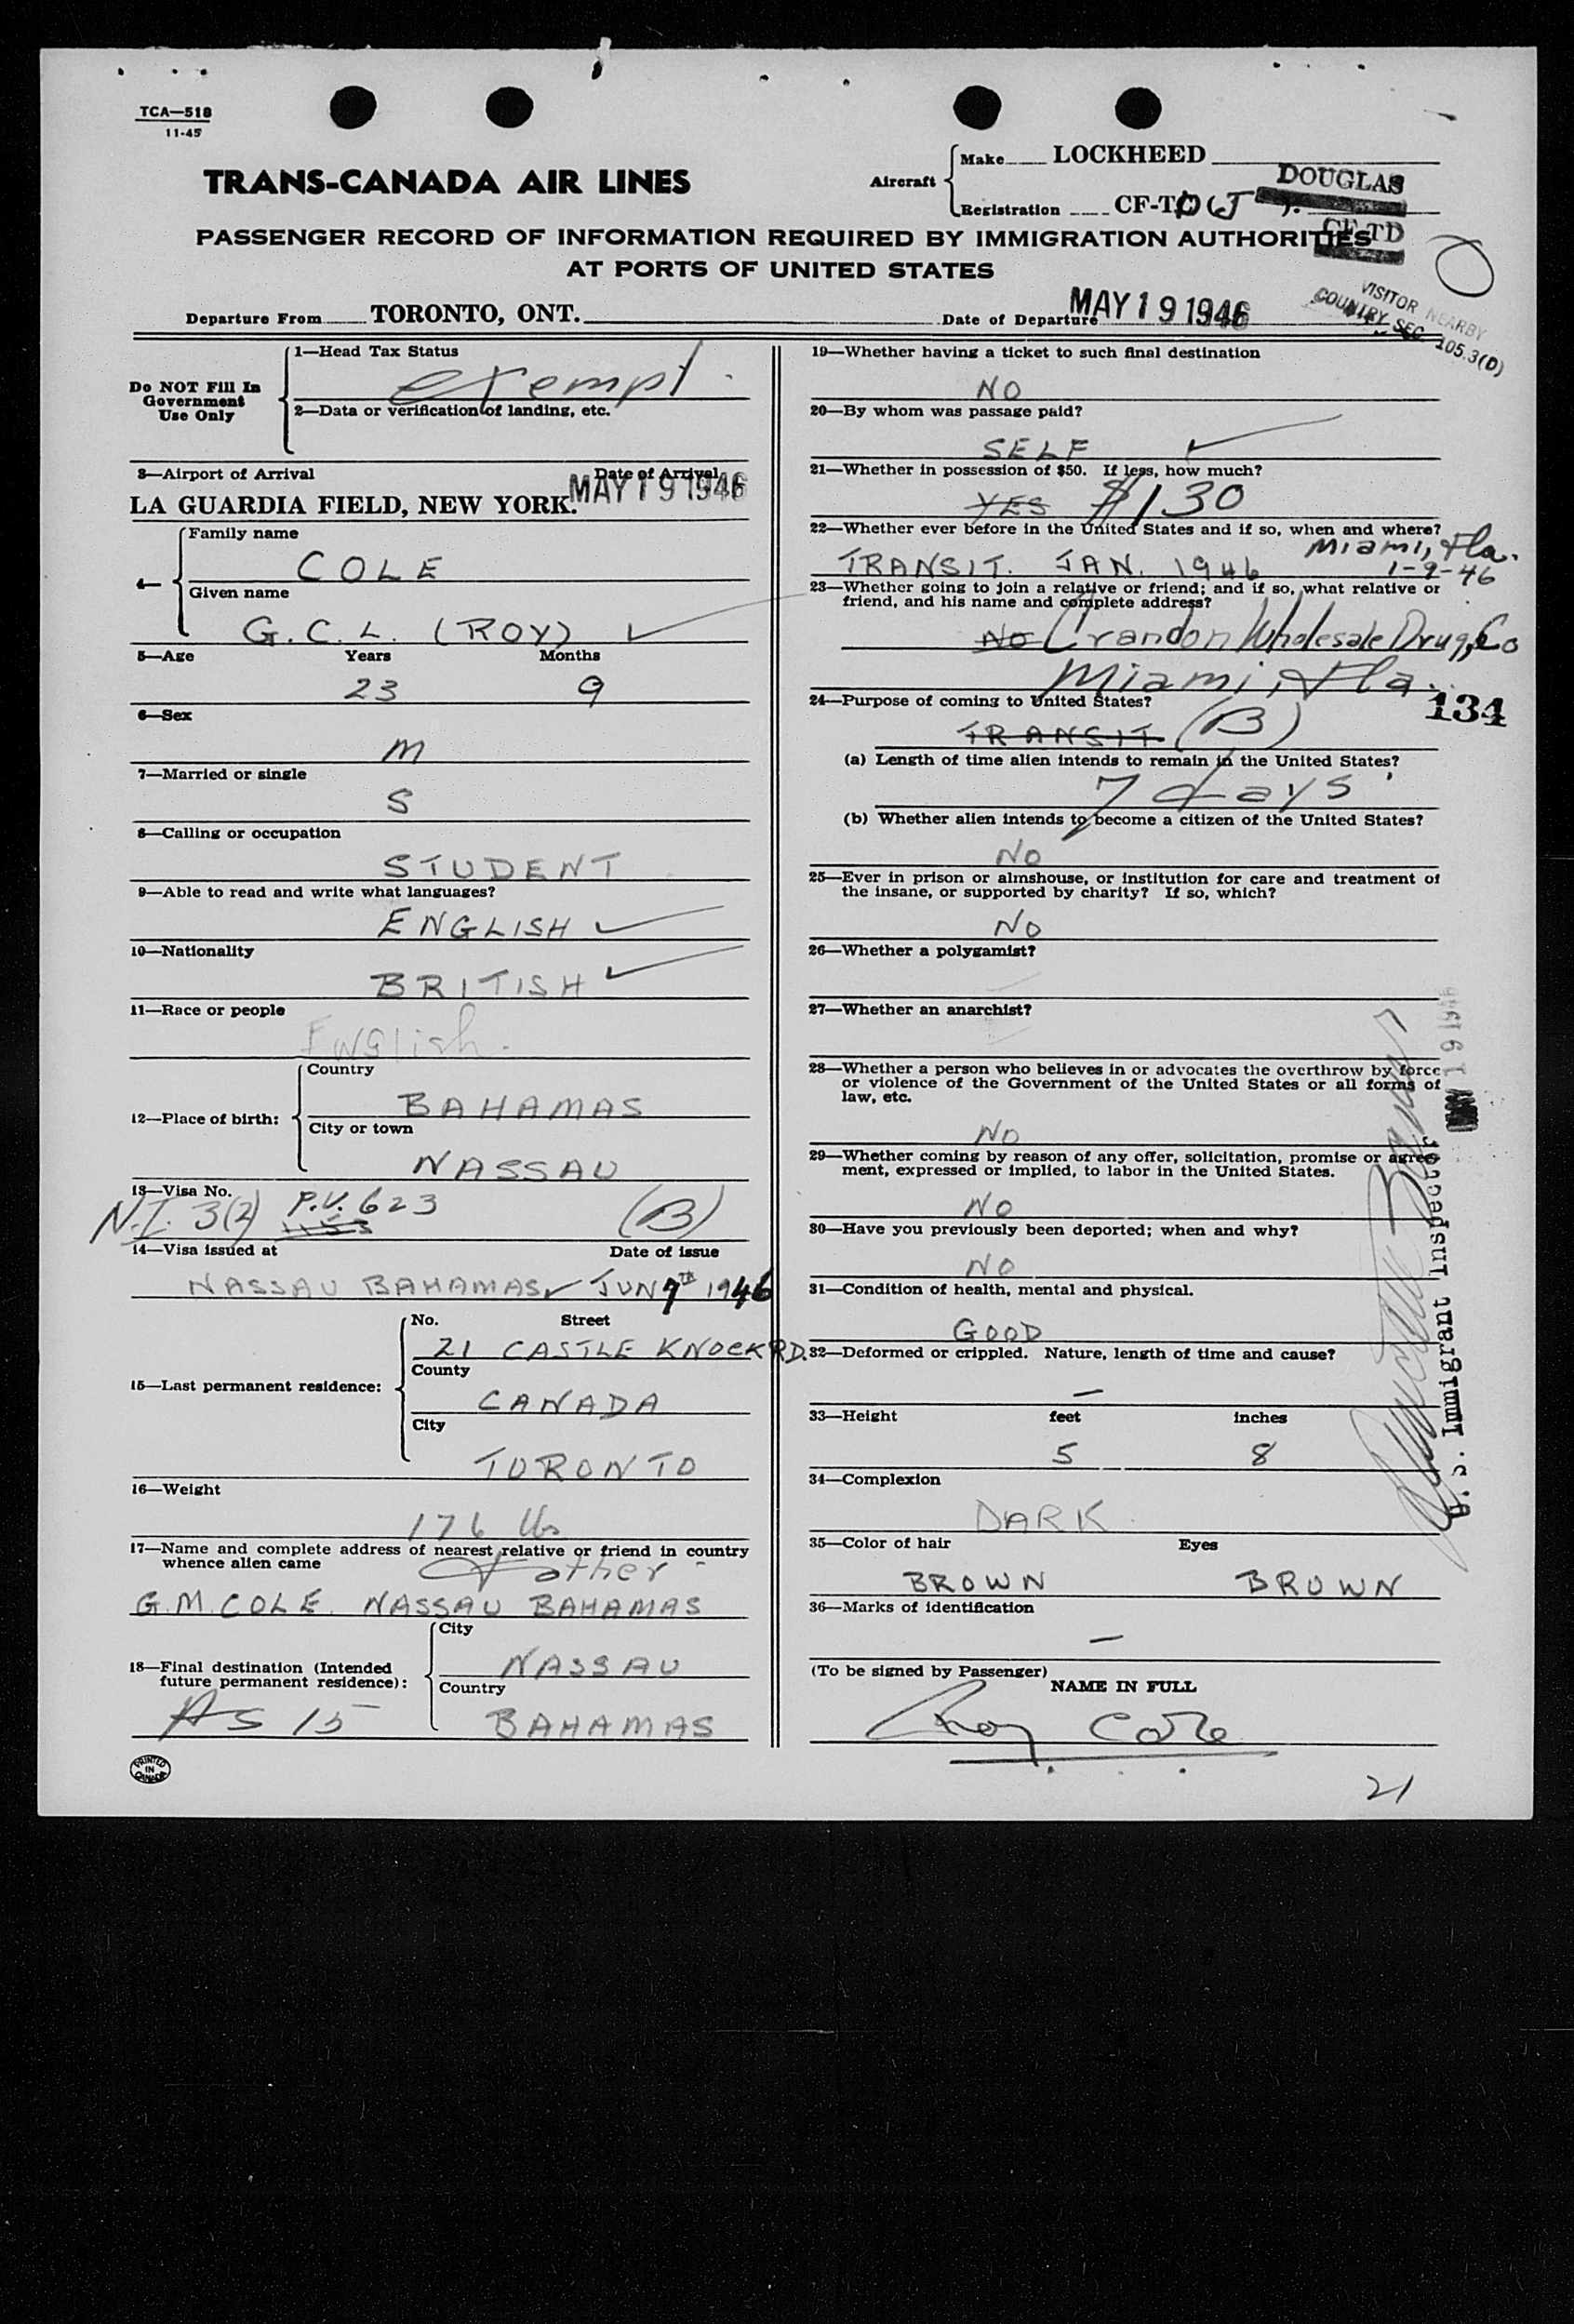 TCA—518
11-45
TRANS-CANADA AIR LINES
Aircraft
Make LOCKHEED
DOUGLAS
Registration CF-T
CF-TD
PASSENGER RECORD OF INFORMATION REQUIRED BY IMMIGRATION AUTHORITIES
AT PORTS OF UNITED STATES
VISITOR NEARBY
COUNTRY SEC. 105.3(D)
Departure From TORONTO, ONT. Date of Departure MAY 19 1946
Do NOT Fill In
Government
Use Only
1—Head Tax Status
exempt.
2—Data or verification of landing, etc.
3—Airport of Arrival Date of Arrival
LA GUARDIA FIELD, NEW YORK. MAY 19 1946
4—
Family name
COLE
Given name
G. C. L. (ROY)
5—Age Years Months
23 9
6—Sex
M
7—Married or single
S
8—Calling or occupation
STUDENT
9—Able to read and write what languages?
ENGLISH
10—Nationality
BRITISH
11—Race or people
English.
12—Place of birth:
Country
BAHAMAS
City or town
NASSAU
13—Visa No.
N.I. 3(2) P.V. 623 (B)
14—Visa issued at Date of issue
NASSAU BAHAMAS JUN 7TH 1946
15—Last permanent residence:
No. Street
21 CASTLE KNOCK RD.
County
CANADA
City
TORONTO
16—Weight
176 lbs
17—Name and complete address of nearest relative or friend in country
whence alien came
Father
G. M. COLE. NASSAU BAHAMAS
18—Final destination (Intended
future permanent residence):
City
NASSAU
Country
As 15 BAHAMAS
PRINTED
IN
CANADA
19—Whether having a ticket to such final destination
NO
20—By whom was passage paid?
SELF
21—Whether in possession of $50. If less, how much?
YES $130
22—Whether ever before in the United States and if so, when and where?
Miami, Fla.
TRANSIT. JAN. 1946 1-9-46
23—Whether going to join a relative or friend; and if so, what relative or
friend, and his name and complete address?
NO Crandon Wholesale Drug, Co
Miami, Fla.
134
24—Purpose of coming to United States?
TRANSIT (B)
(a) Length of time alien intends to remain in the United States?
7 days
(b) Whether alien intends to become a citizen of the United States?
NO
25—Ever in prison or almshouse, or institution for care and treatment of
the insane, or supported by charity? If so, which?
NO
26—Whether a polygamist?
27—Whether an anarchist?
28—Whether a person who believes in or advocates the overthrow by force
or violence of the Government of the United States or all forms of
law, etc.
NO
29—Whether coming by reason of any offer, solicitation, promise or agree-
ment, expressed or implied, to labor in the United States.
NO
30—Have you previously been deported; when and why?
NO
31—Condition of health, mental and physical.
GOOD
32—Deformed or crippled. Nature, length of time and cause?
—
33—Height feet inches
5 8
34—Complexion
DARK
35—Color of hair Eyes
BROWN BROWN
36—Marks of identification
—
(To be signed by Passenger)
NAME IN FULL
Roy Cole
21
U.S. Immigrant Inspector
MAY 19 1946